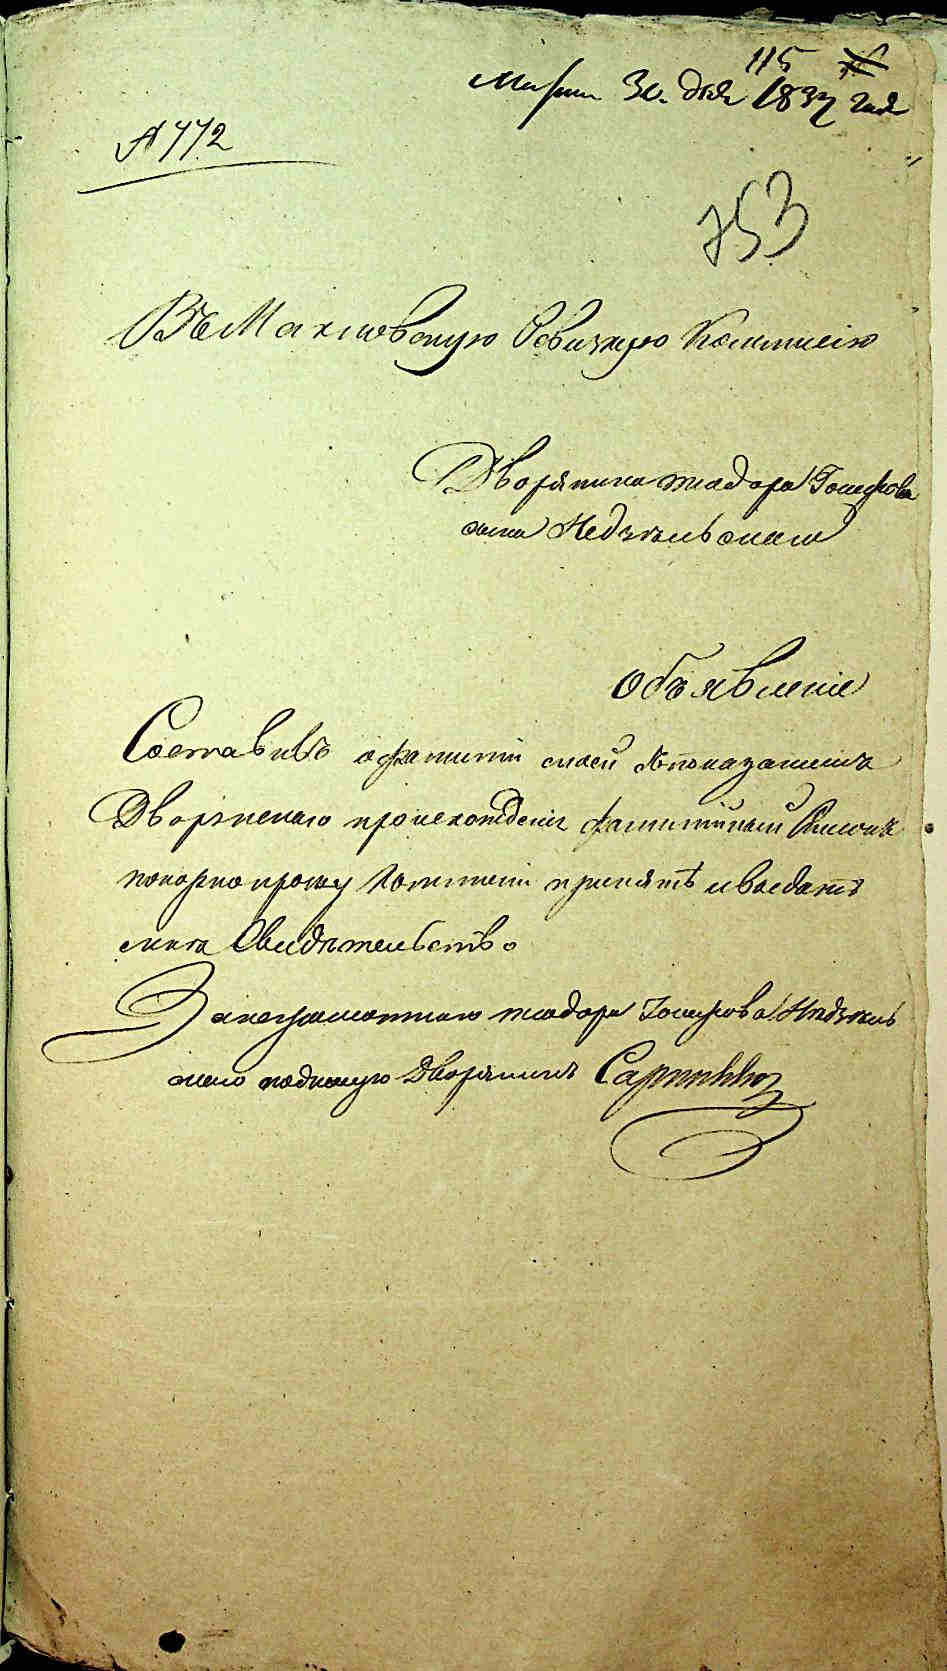 115
Марта 30. дня 1837 года
№ 772
753
Въ Махновскую Ревизную Коммисію
Дворянина Теодора Іосифова
сына Недзѣльскаго
Объявленіе
Составивъ о фамиліи моей съ показаніемъ
Дворянскаго происхожденія фамилійный Список
покорно прошу Коммисіи принять и выдать
мнѣ Свидѣтельство
За неграмотнаго Теодора Іосифова Недзѣль
скаго подпису Дворянинъ